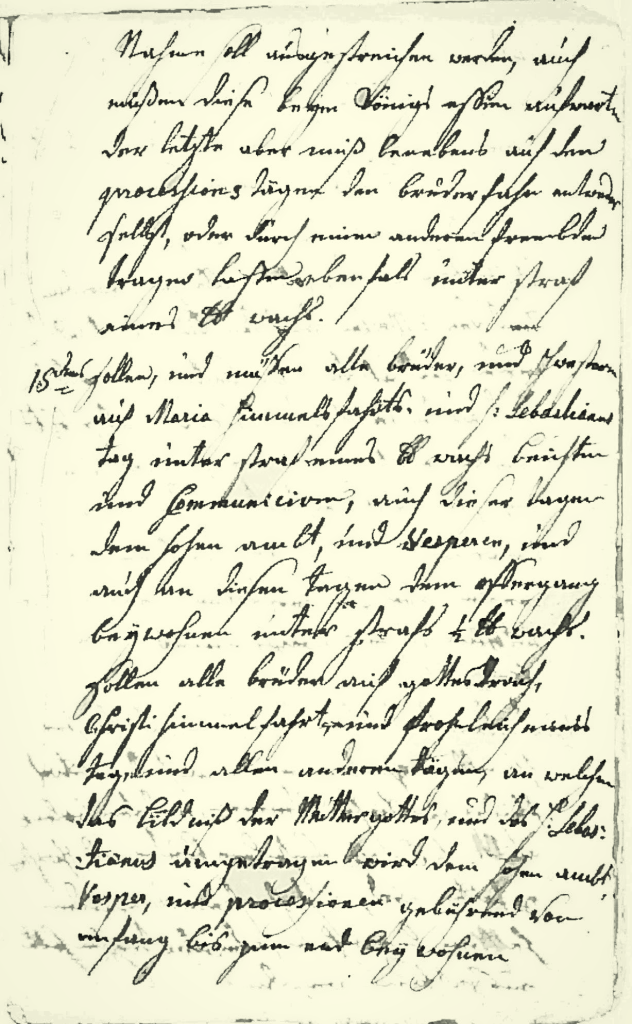 Nahme soll ausgestreichen werden, auch
müßen diese beym Königs eßen aufwarten
der letzte aber muß benebens auf den
processions tägen den bruderfahn entweder
selbst, oder durch einen anderen frembden
tragen laßen ebenfals unter straf
eines ℔ wachs.
15tens sollen, und müßen alle brüder, und schwestern
auf Maria Himmelsfahrts- und S: Sebastianus
tag unter straf eines ℔ wachs beichten
und Communiciren, auch dieser tagen
dem hohen ambt, und Vesperen, und
auch an diesen tagen dem offergang
beywohnen unter strafs ½ ℔ wachs.
Sollen alle brüder auf gottestracht,
Christi himmelfahrt, und frohnleichnams
tag, und allen anderen tägen, an welchen
das bildniß der Muttergottes, und des S: Sebas:
tianus umgetragen wird dem hohen ambt,
Vesper, und processionen gebührend von
anfang bis zum end beywohnen